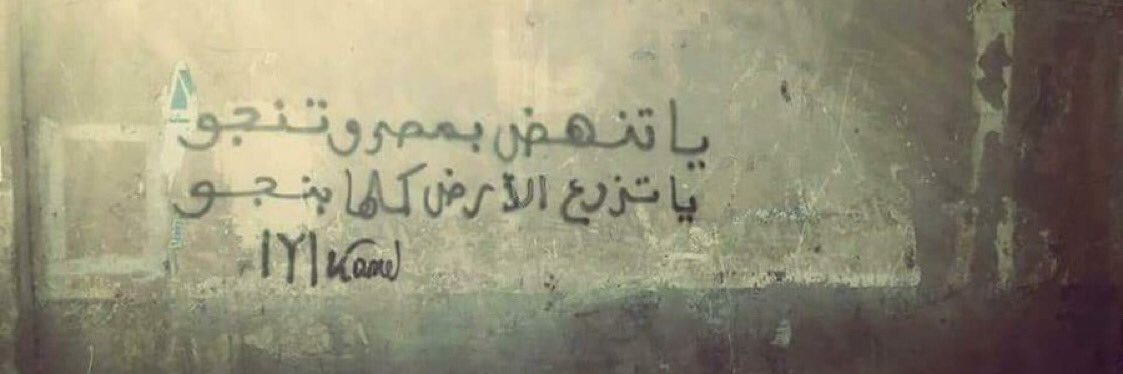 يا تنهض بمصر وتنجو
يا تزرع الأرض كلها بنجو
١٢١ Kamel